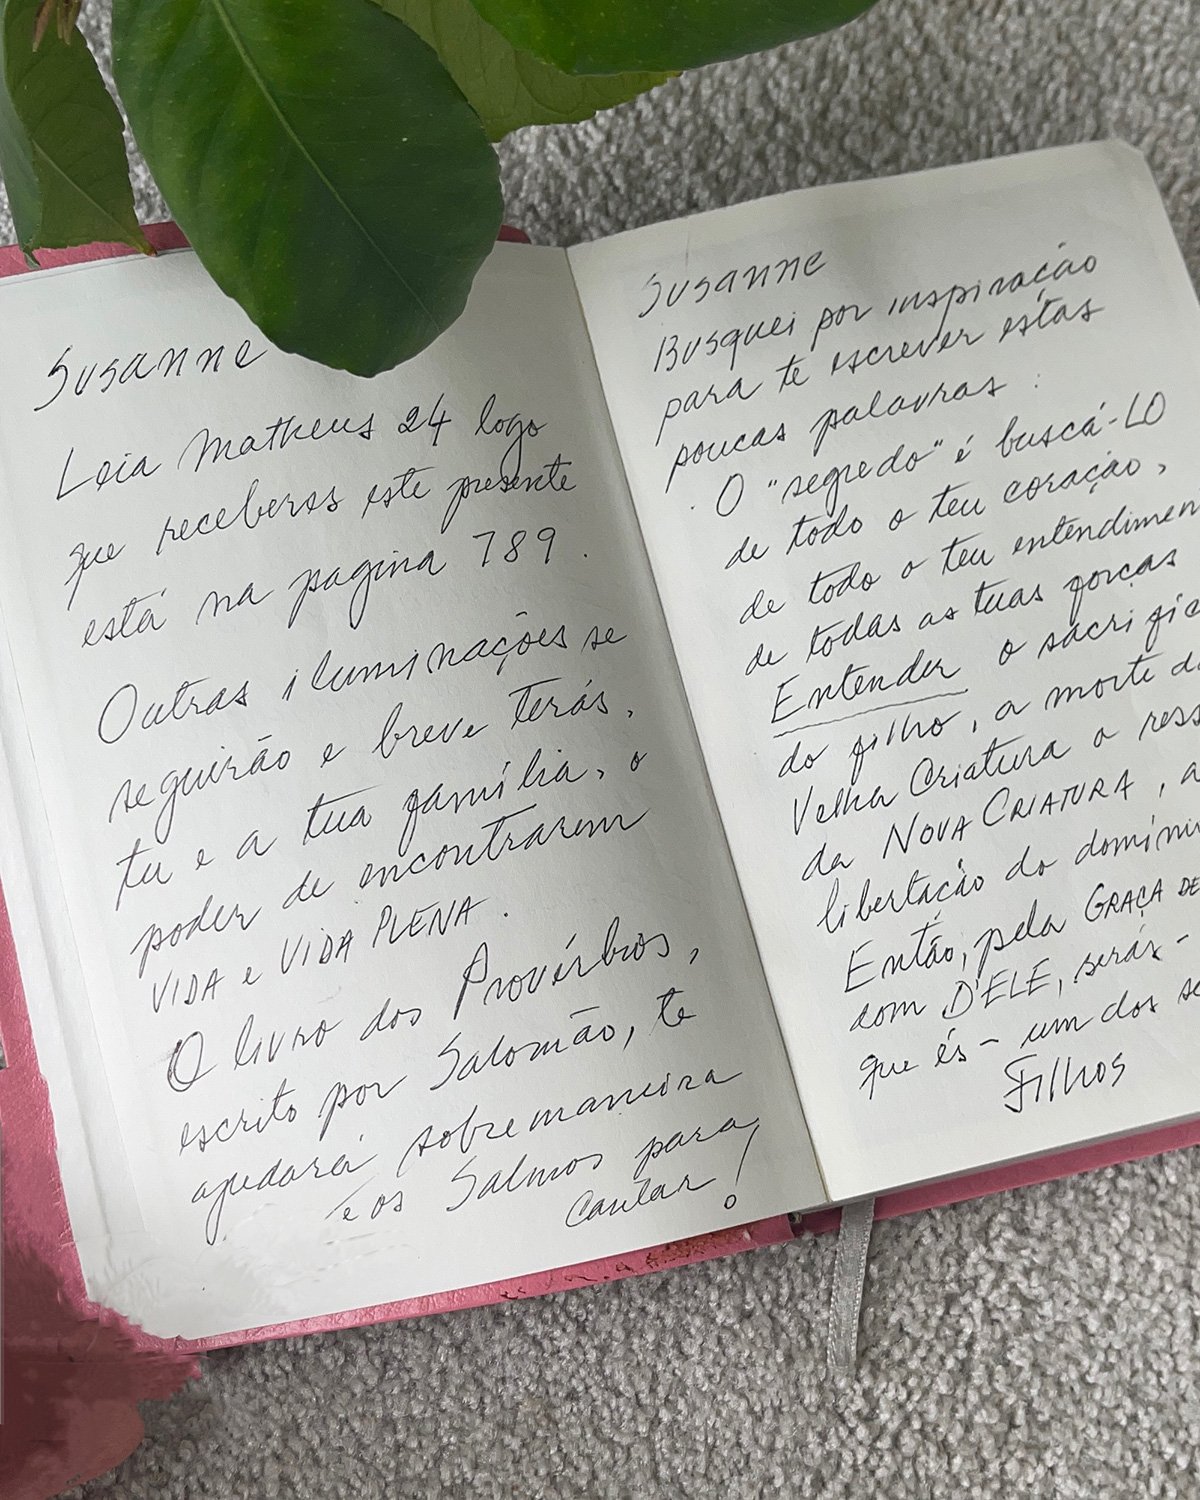 Susanne
Leia Matheus 24 logo
que receberas este presente
está na pagina 789.
Outras iluminações se
seguirão e breve terás,
tu e a tua família, o
poder de encontrarem
VIDA e VIDA PLENA.
O livro dos Provérbios,
escrito por Salomão, te
ajudará sobremaneira
e os Salmos para
Cantar!
Susanne
Busquei por inspiração
para te escrever estas
poucas palavras:
O "segredo" é buscá-LO
de todo o teu coração,
de todo o teu entendimen
de todas as tuas forças
Entender o sacrific
do filho, a morte da
Velha Criatura a ress
da NOVA CRIATURA, a
libertação do domíni
Então, pela GRAÇA DE
dom D'ELE, serás-
que és- um dos se
Filhos